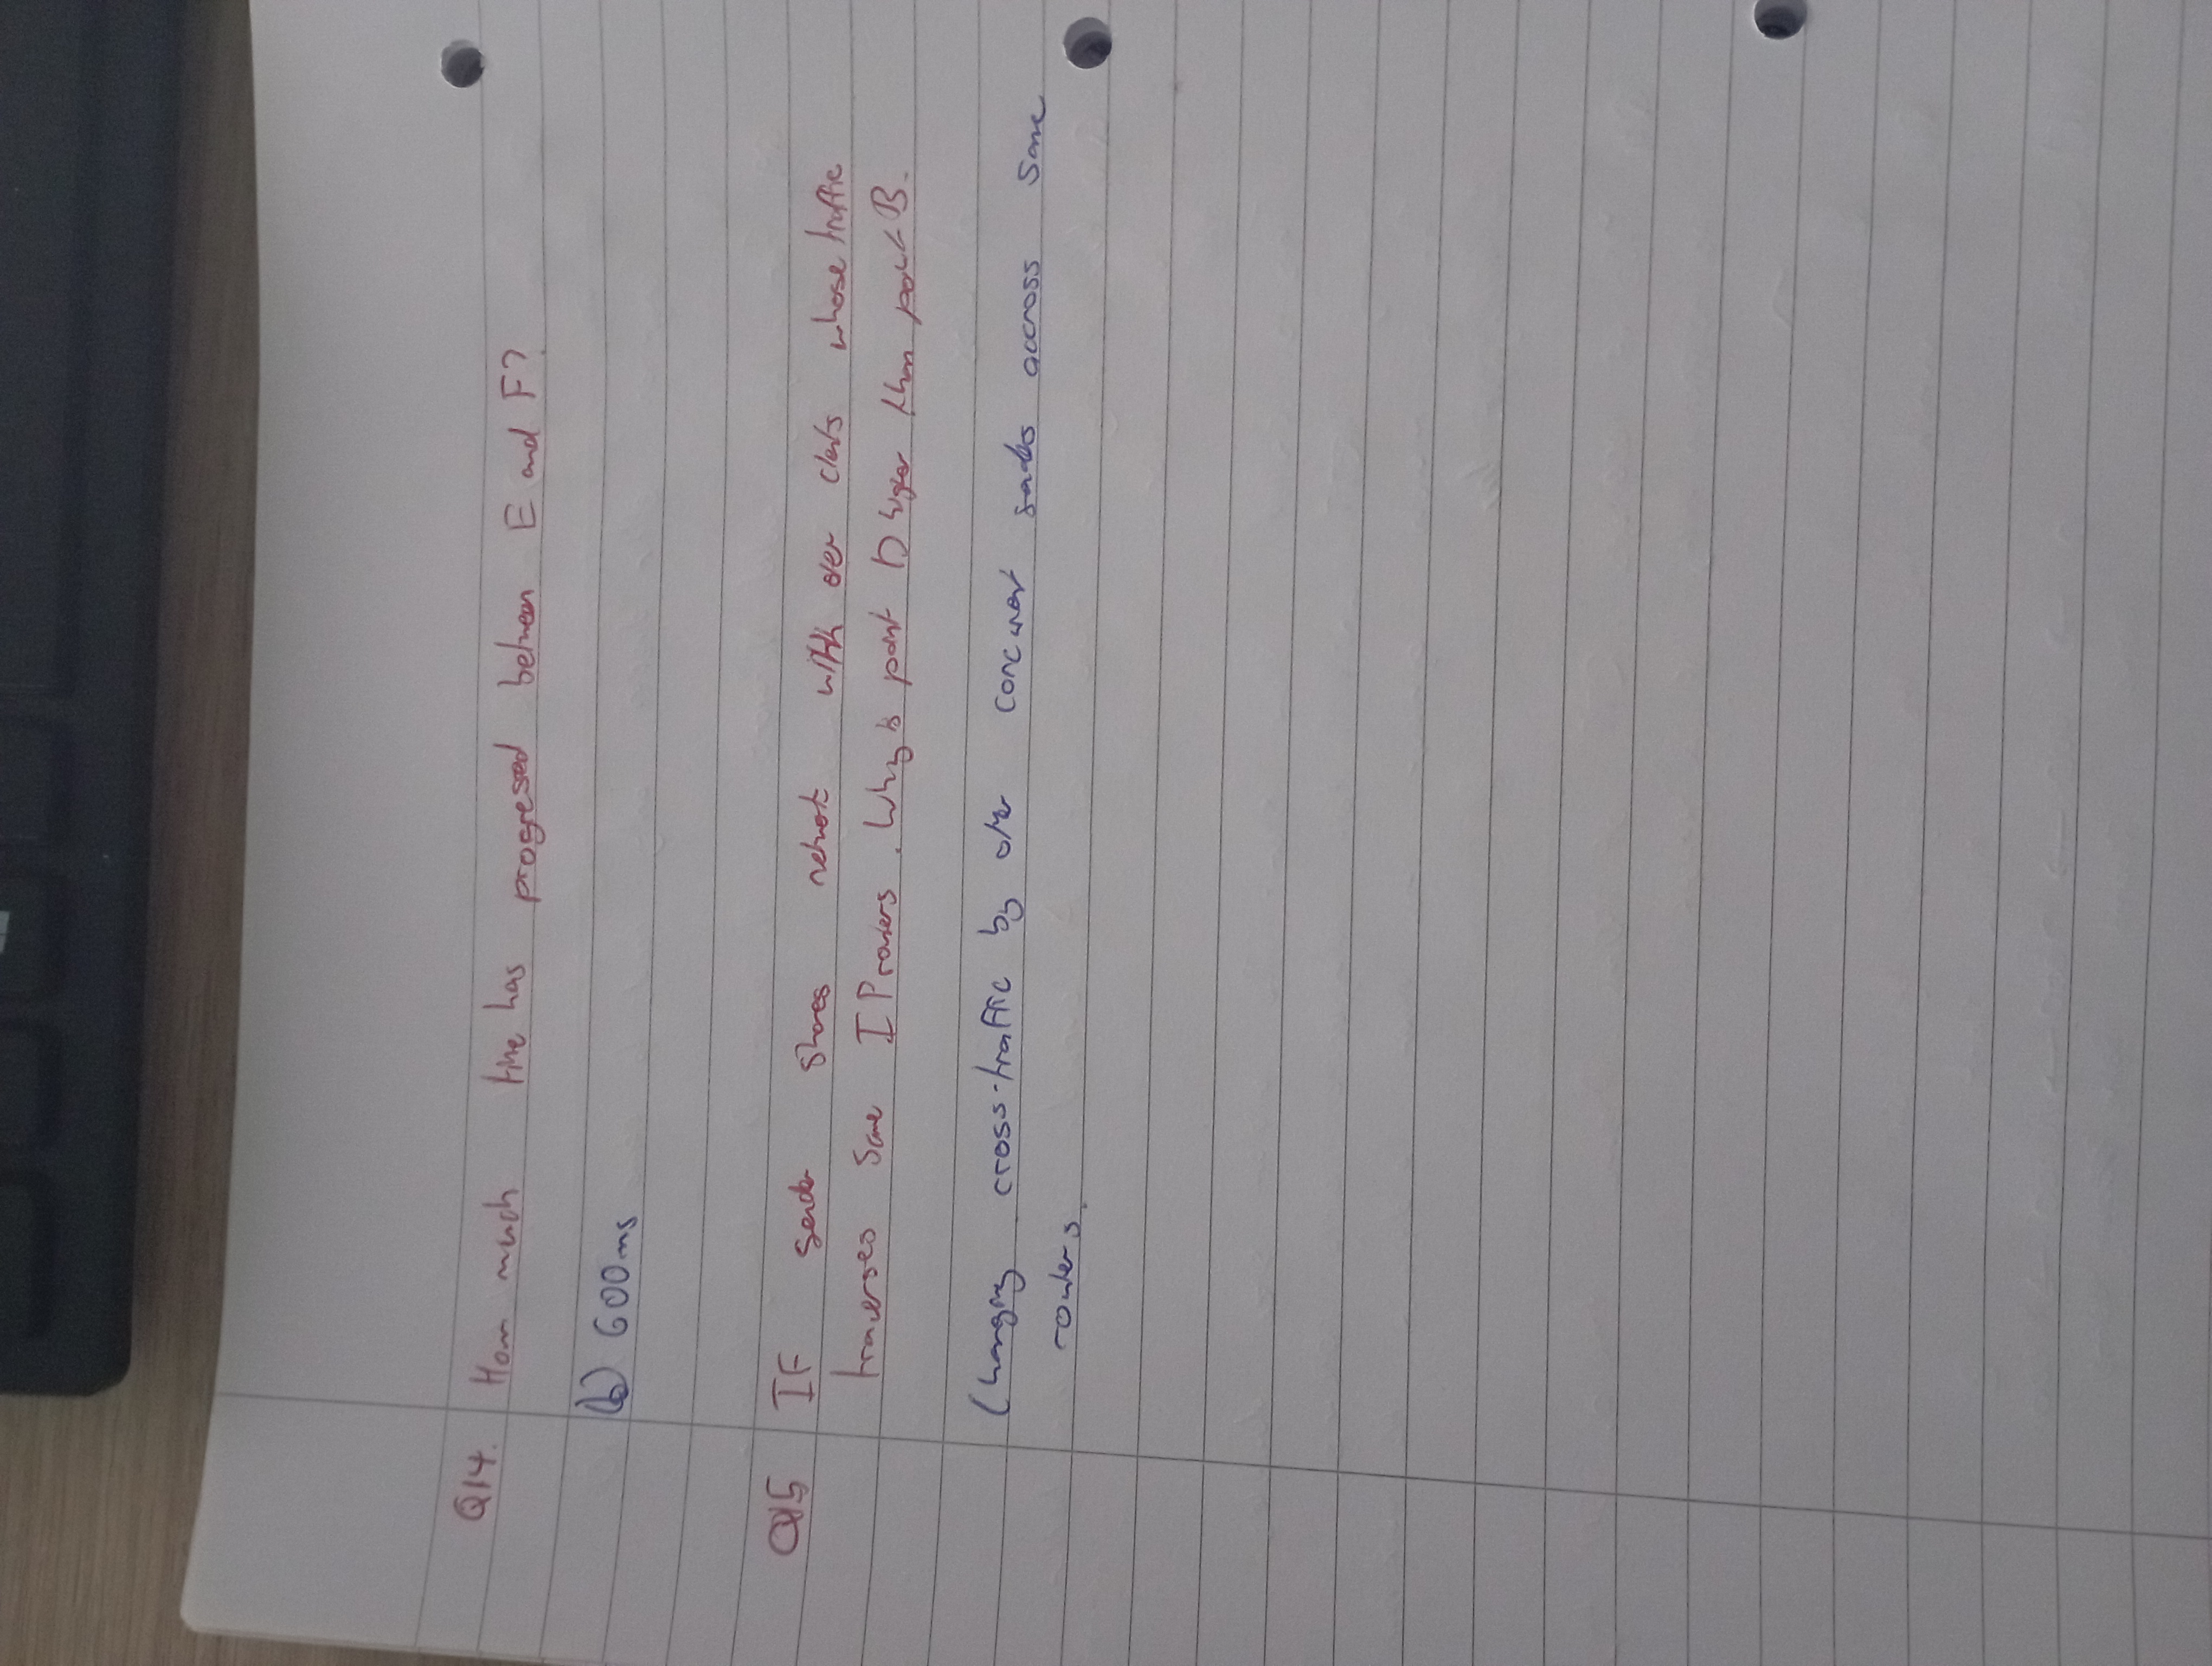 Q14. How much time has progressed between E and F?
(b) 600ms
Q15 IF sender shares network with other clients whose traffic
traverses same IP routers. Why is point D higher than point B.
Changing cross-traffic by other concurrent senders accross same
routers.